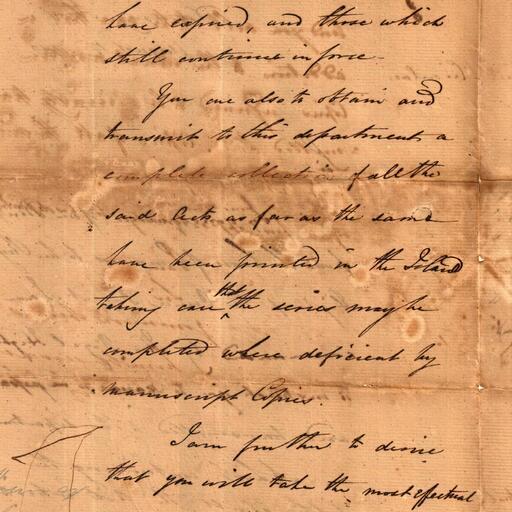 have expired, and those which
still continue in force.
You are also to obtain and
transmit to this department a
complete collection of all the
said Acts as far as the same
have been printed in the Island
taking care that the series may be
completed where deficient by
manuscript Copies.
I am further to desire
that you will take the most effectual